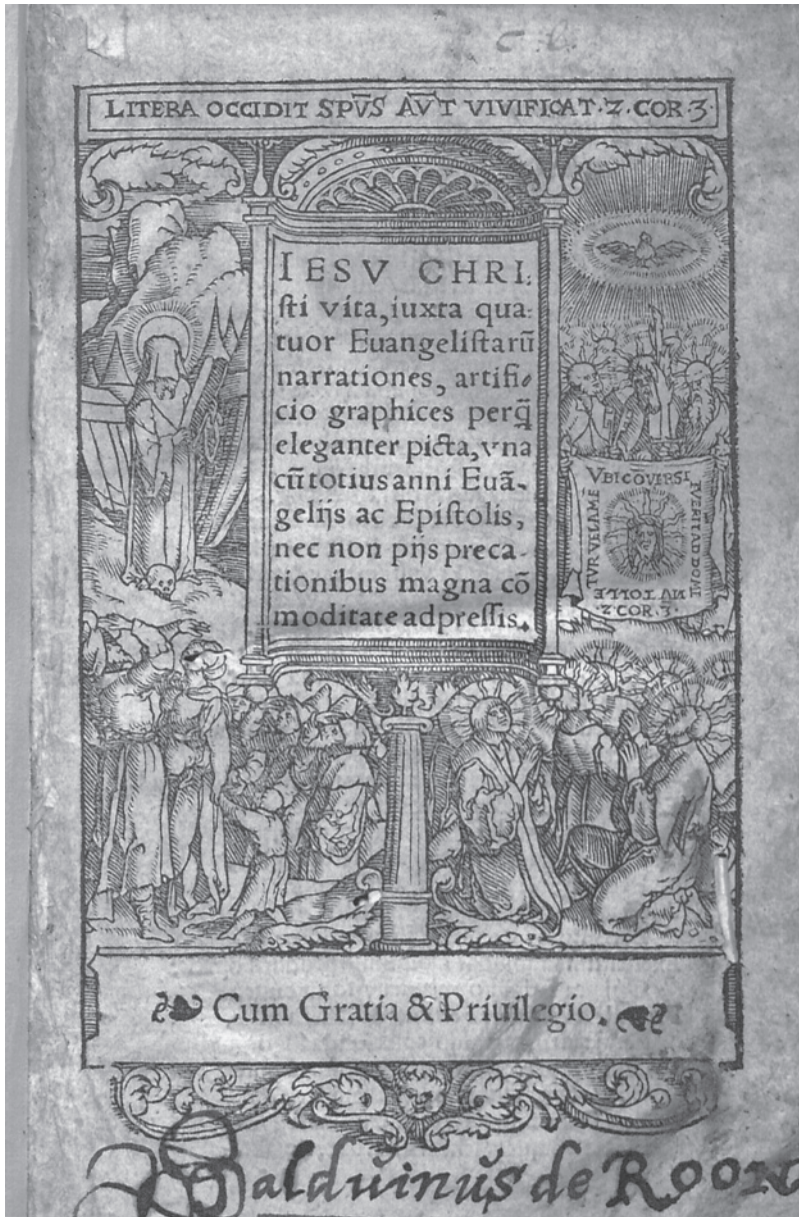 LITERA OCCIDIT SPV̄S AV̄T VIVIFICAT·2·COR·3·
IESV CHRI⸗
ſti vita, iuxta qua⸗
tuor Euangeliſtarū
narrationes, artifi⸗
cio graphices perq̄
eleganter picta, vna
cū totius anni Euā⸗
gelijs ac Epiſtolis,
nec non pijs preca⸗
tionibus magna cō
moditate adpreſſis.
VBI COVERSI
FVERIT AD DOMI
NV TOLLE
TVR VELAME
·2·COR·3·
Cum Gratia & Priuilegio.
Balduinus de